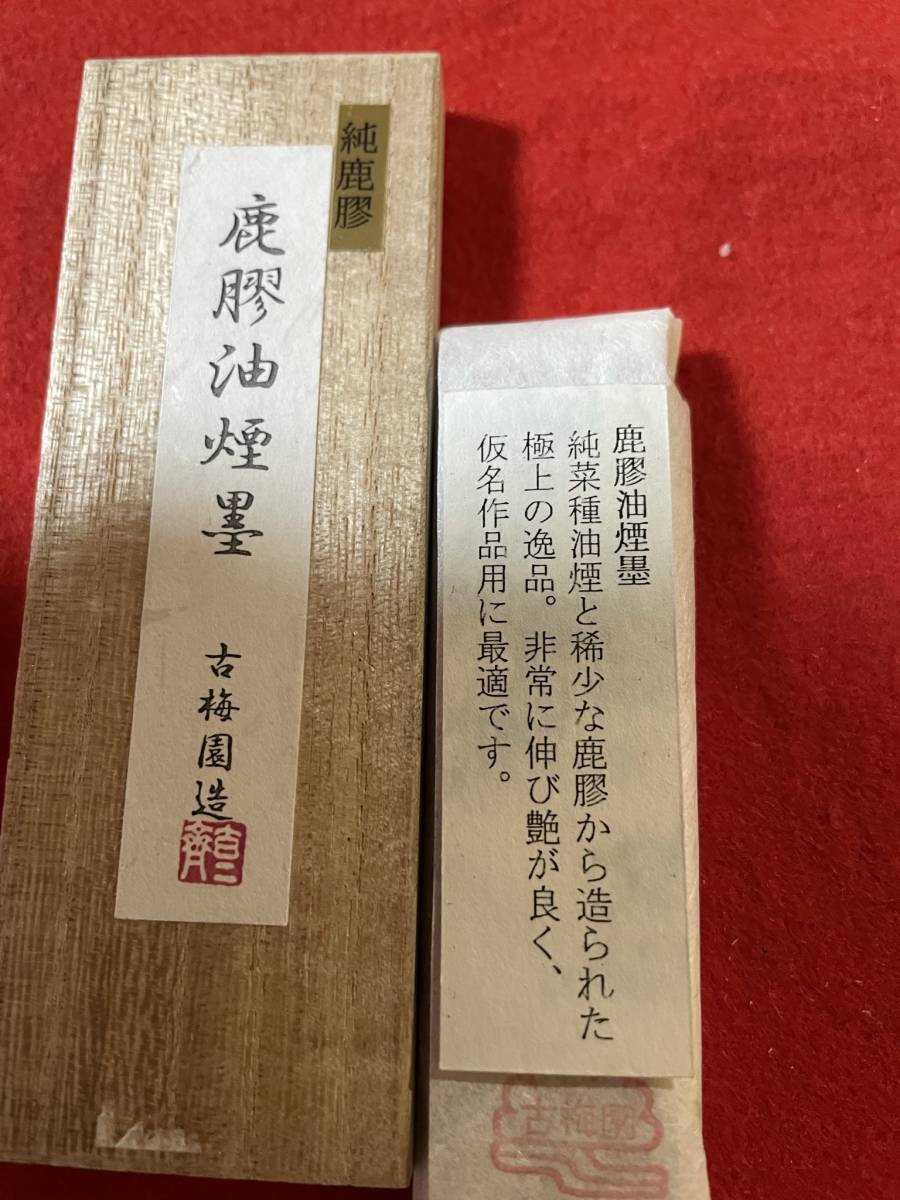 純鹿膠
鹿膠油煙墨
古梅園造
鹿膠油煙墨
純菜種油煙と稀少な鹿膠から造られた
極上の逸品。非常に伸び艶が良く、
仮名作品用に最適です。
古梅園